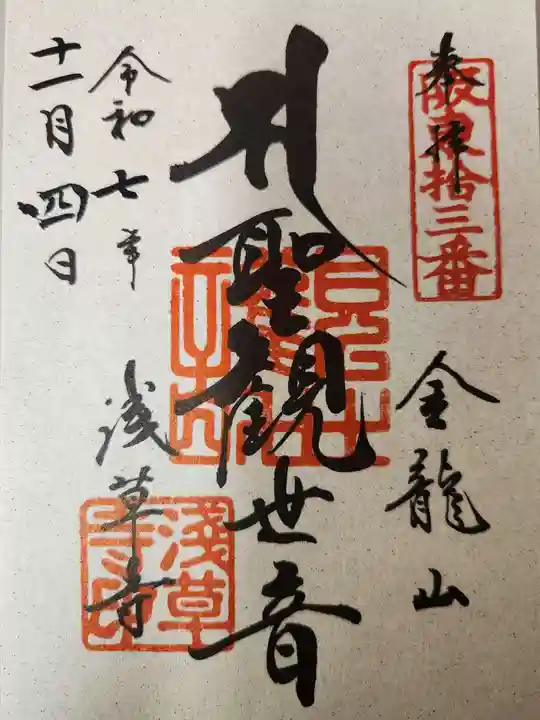 奉拝
坂東拾三番
金龍山
聖観世音
淺草寺印
浅草寺
令和七年
十一月四日